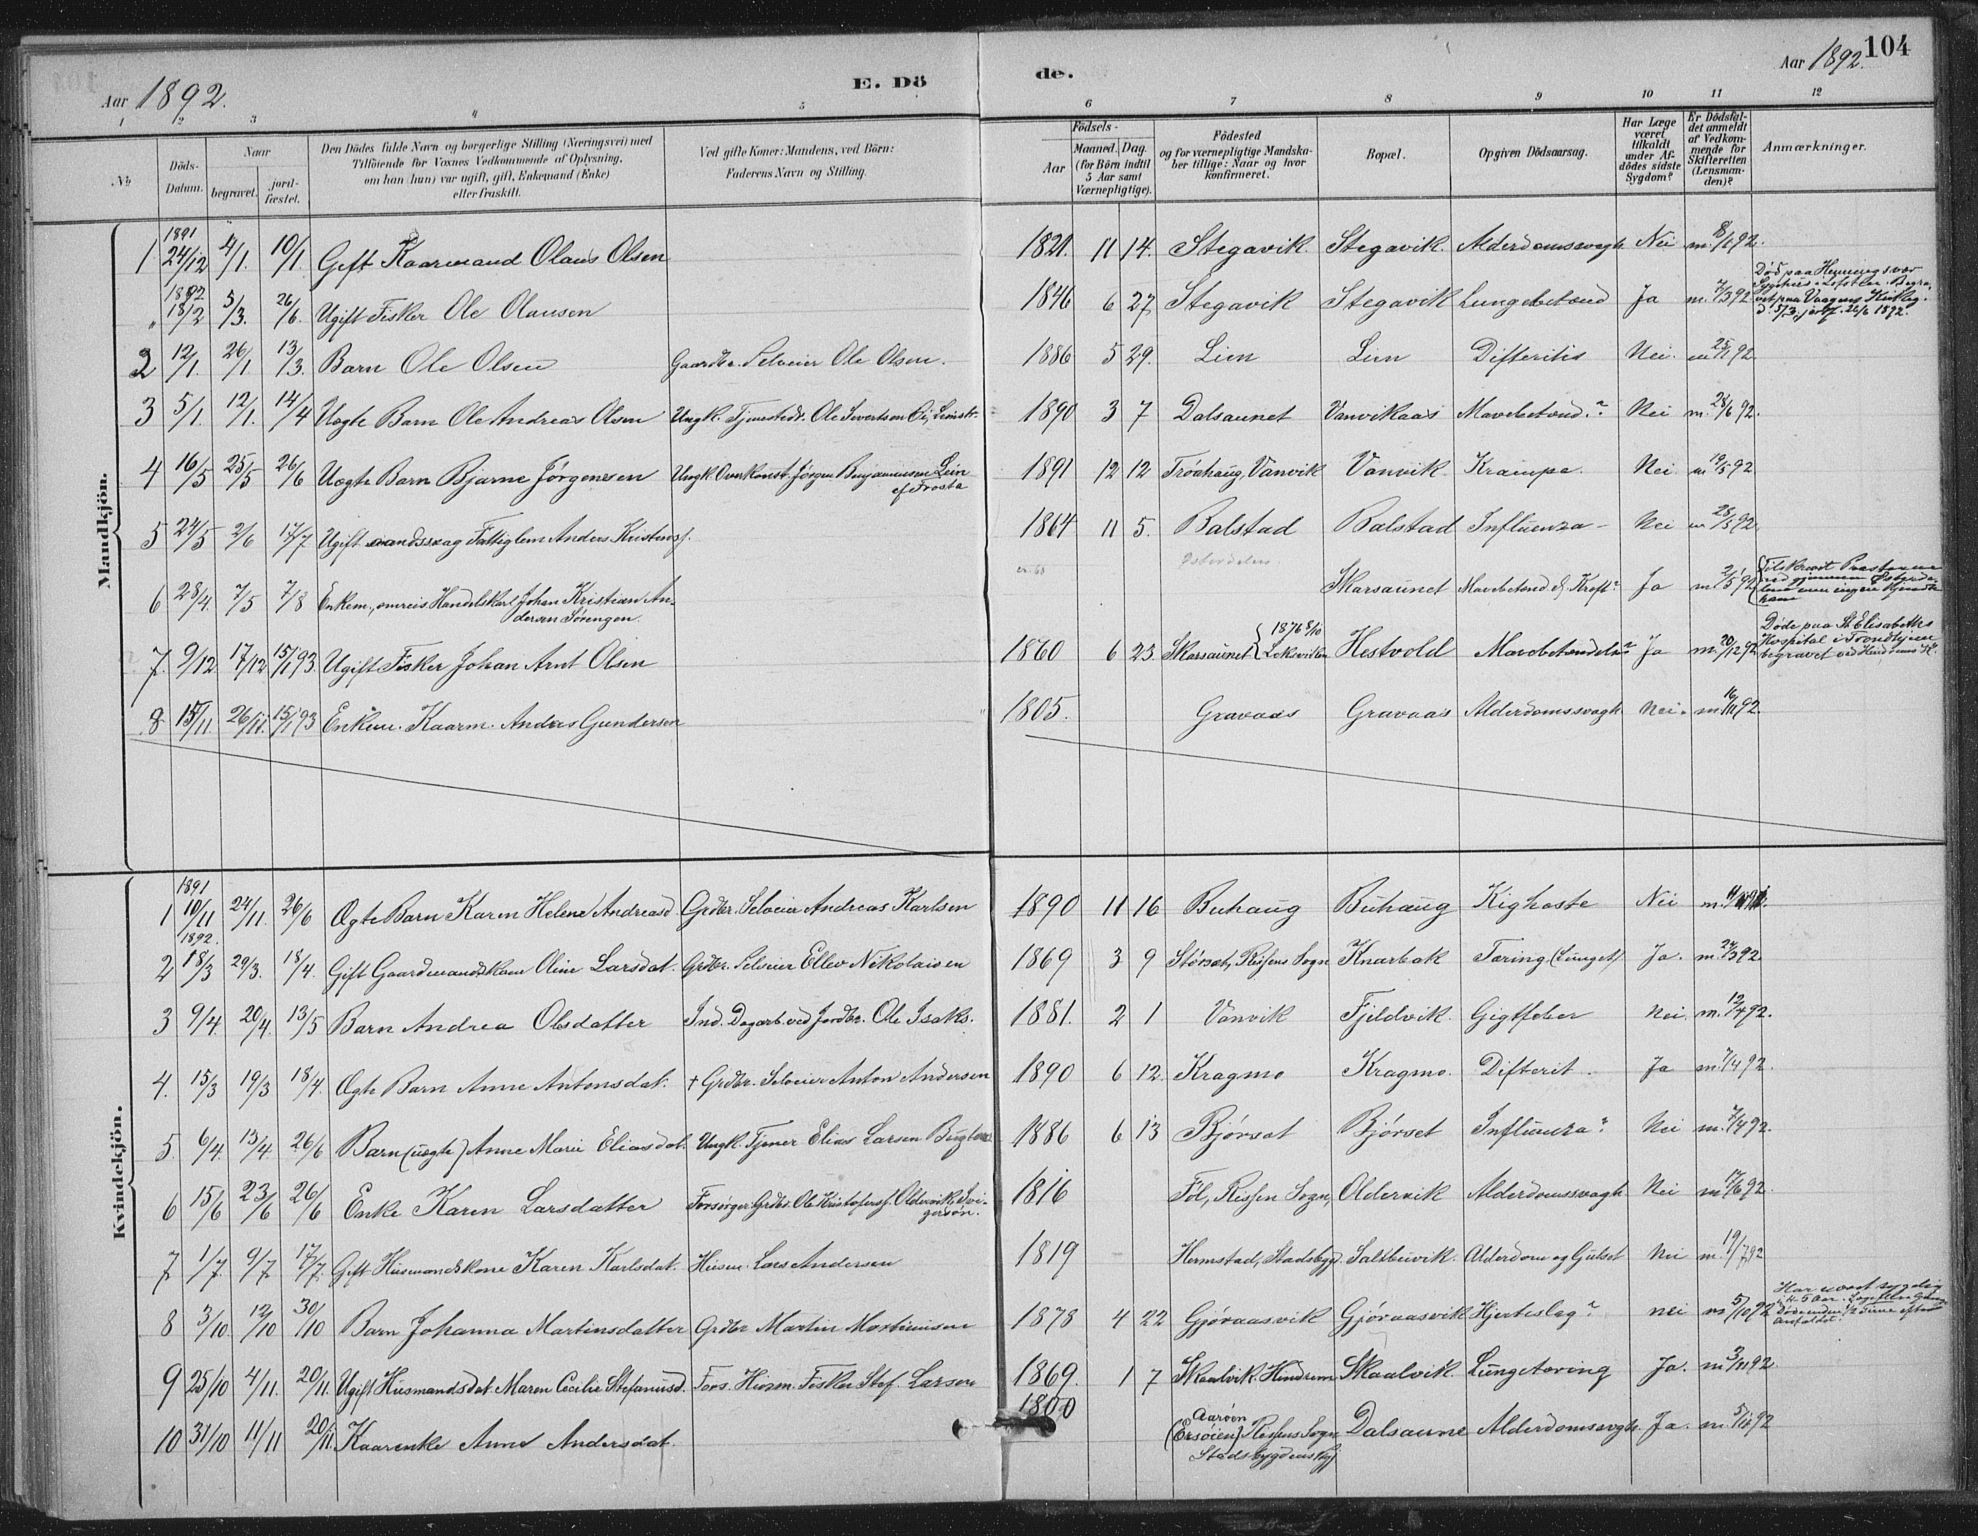 Aar 1892.
E. Dö
de.
Aar 1892.
104
1 2 3 4 5 6 7 8 9 10 11 12
No
Döds-Datum.
Naar
begravet.
jord-fæstet.
Den Dödes fulde Navn og borgerlige Stilling (Næringsvei) med
Tilföiende for Voxnes Vedkommende af Oplysning,
om han (hun) var ugift, gift, Enkemand (Enke)
eller fraskilt.
Ved gifte Koner: Mandens, ved Börn:
Faderens Navn og Stilling.
Födsels-
Aar
Maaned. Dag.
(for Börn indtil
5 Aar samt
Værnepligtige).
Födested
og for værnepligtige Mandska-
ber tillige: Naar og hvor
konfirmeret.
Bopæl.
Opgiven Dödsaarsag.
Har Læge
været
tilkaldt
under Af-
dødes sidste
Sygdom?
Er Dödsfal-
det anmeldt
af Vedkom-
mende for
Skifteretten
(Lensman-
den)?
Anmærkninger.
Mandkjön.
1 1891 24/12 4/1. 10/1. Gift Kaarmand Olaus Olsen 1821. 11 14. Stegavik Stegavik. Alderdomssvagh. Nei m. 8/1 92.
" 1892 18/2 5/3. 26/6. Ugift Fisker Ole Olausen 1846 6 27 Stegavik Stegavik Lungebetænd Ja m. 7/3 92.
Död paa Henningsvær
Sygehus i Lofoten. Begra-
vet paa Vaagens Kirkeg.
d. 5/3, jordf. 26/6 1892.
2 12/1. 26/1 13/3. Barn Ole Olsen Gaardbr. Selveier Ole Olsen. 1886 5 29. Lien Lien Difteritis Nei. m. 25/1 92
3 5/1. 12/1. 14/4 Uægte Barn Ole Andreas Olsen Ungk. Tjenstedr. Ole Sivertsen 1890 3 7 Dalsaunet Vanvikaas Mavebetænd.? Nei m. 28/6 92.
4 16/5 25/5 26/6 Uægte Barn Bjarne Jørgensen Ungk. Jørgen Benjaminsen Lein
af Frosta
1891 12 12 Trøahaug, Vanvik Vanvik Krampe. Nei m. 19/5 92
5 24/5 2/6 17/7 Ugift Fattiglem Anders Kristens. 1864 11 5. Balstad Balstad Influenza - Nei m 28/5 92.
6 28/4. 7/5 7/8 Enkem., omreis. Handelskarl Johan Kristian An-
dersen Sörengen.
Österdalen Skarsaunet Mavebetænd. el. Kræft? Ja m. 2/5 92
7. 9/12 17/12 15/1 93 Ugift Fisker Johan Arnt Olsen 1860 6 23 Skarsaunet { 1876 8/10 Leksviken Hestvold Mavebetændelse? Ja m. 20/12 92
Døde paa St. Elisabeths
Hospital i Trondhjem
begravet ved Hindrems K.
8. 15/11. 26/11. 15/1 93 Enkem. Kaarm. Andrs Gundersen 1805. Gravaas Gravaas Alderdomssvagh. Nei. m. 16/11 92.
Kvindekjön.
1 1891 10/11 24/11. 26/6 Ægte Barn Karen Helene Andreasd. Grdbr. Selveier Andreas Karlsen 1890 11 16 Buhaug Buhaug Kighoste Nei
2 1892. 18/3 29/3. 18/4. Gift Gaardmandskone Oline Larsdat. Grdbr. Selveier Ellev Nikolaisen 1869 3 9 Størset, Rissens Sogn Knarbak Tæring (Lunget) Ja. m. 24/3 92
3 9/4. 20/4. 13/5 Barn Andrea Olsdatter Ind. Dagarb. ved Jordbr. Ole Isaks. 1881. 2 1 Vanvik Fjeldvik. Gigtfeber Nei. m. 12/4 92.
4. 15/3 19/3 18/4. Ægte Barn Anne Antonsdat. + Grdbr. Selveier Anton Andersen 1890 6 12. Kragmo Kragmo. Difterit. Ja m. 7/4 92.
5. 6/4. 13/4. 26/6 Barn (uægte) Anne Marie Eliasdat. Ungk. Tjener Elias Larsen 1886 6 13 Bjørset Bjørset Influenza? Nei m. 7/4 92.
6 15/6 23/6 26/6 Enke Karen Larsdatter Forsørger: Grdbr. Ole Kristofers. Oldervik, Svi-
gersøn.
1816 Föl, Rissen Sogn, Oldervik Alderdomssvagh. Nei m. 17/6 92.
7 1/7. 9/7 17/7. Gift Husmandskone Karen Karlsdat. Husm. Lars Andersen 1819 Hermstad, Stadsbygd. Saltbuvik. Alderdom og Gulsot Nei m. 19/7 92
8 3/10 12/10 30/10 Barn Johanna Martinsdatter Grdbr Martin Mortensen 1878 4 22 Gjøraasvik Gjøraasvik Hjerteslag? nei m 5/10 92
9 25/10 4/11. 20/11. Ugift Husmandsdat. Maren Cecilie Stefanusd. Fors. Husm. Fisker Stef. Larsen 1869. 1 7 Skaalvik Hindrem Skaalvik. Lungetæring Ja. m. 3/11 92
10 31/10 11/11 20/11. Kaarenke Anne Andersdat. 1800 Aarøen
(Ersøien) Rissens Sogn
Stadsbygdens Pgj.
Dalsaune Alderdomssvagh. Ja. m. 5/11 92